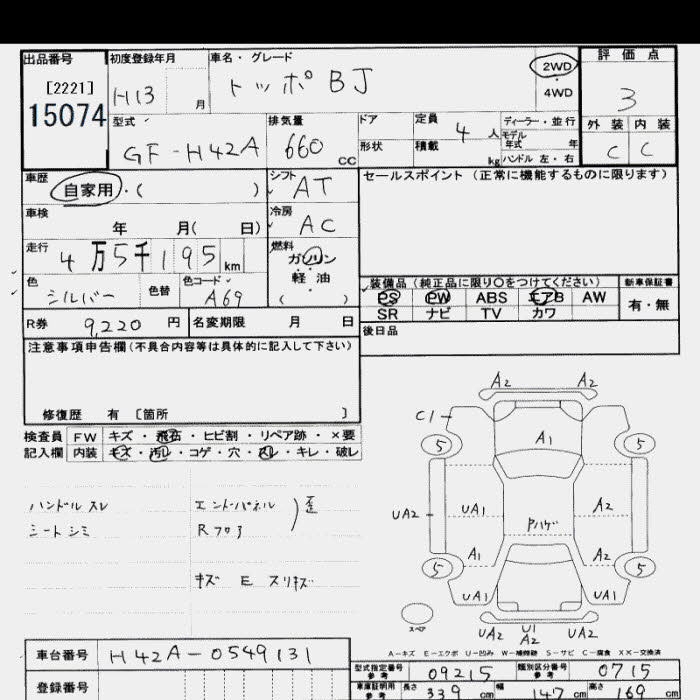 出品番号 初度登録年月 車名・グレード 評価点
[2221] H13 月 トッポBJ 2WD・4WD 3
15074
型式 排気量 ドア 定員 ディーラー・並行 外装 内装
GF-H42A 660 CC 形状 積載 4人 kg モデル年式 年 ハンドル 左・右 C C
車歴 シフト セールスポイント（正常に機能するものに限ります）
自家用・( ) AT
車検 年 月( 日) 冷房 AC
走行 4万5千195km 燃料 ガソリン・軽油( )
色 シルバー 色替 色コード A69
装備品（純正品に限り○をつけてください） 新車保証書
PS PW ABS エアB AW 有・無
SR ナビ TV カワ
R券 9,220円 名変期限 月 日 後日品
注意事項申告欄(不具合内容等は具体的に記入して下さい)
修復歴 有 〔箇所 〕
検査員 FW キズ・飛石・ヒビ割・リペア跡・×要
記入欄 内装 キズ・汚レ・コゲ・穴・スレ・キレ・破レ
ハンドルスレ エンドパネル 歪
シートシミ Rフロア
キズ E スリキズ
A2 A2
C1
5 A1 5
UA2 UA1 PハゲA2
A1 A2
5 5
UA1 UA1
スペア UA2 U1 A2 UA2
A-キズ E-エクボ U-凹み W-補修跡 S-サビ C-腐食 XX-交換済
車台番号 H42A-0549131
型式指定番号 参考 09215 類別区分番号 参考 0715
登録番号 車庫証明用 参考 長さ 339 cm 幅 147 cm 高さ 169 cm